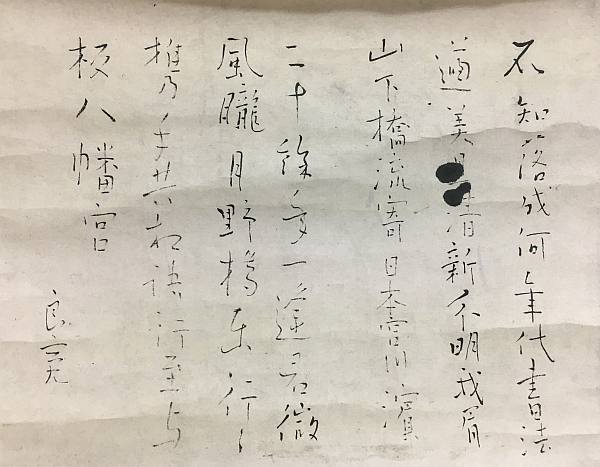 不知落成何年代書法
遒美且清新分明我眉
山下橋流寄日本宮川濱
二十餘年一逢君微
風朧月野橋東行々
携手共相語行至与
板八幡宮
良寛